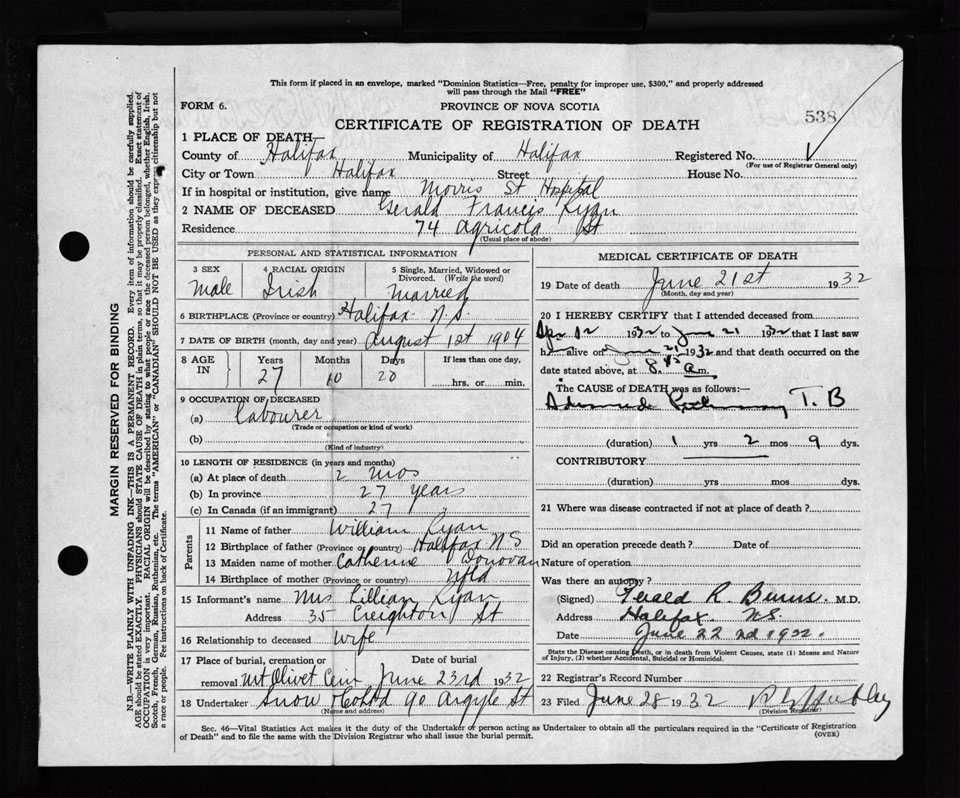 This form if placed in an envelope, marked "Dominion Statistics—Free, penalty for improper use, $300," and properly addressed
will pass through the Mail "FREE"
FORM 6.
PROVINCE OF NOVA SCOTIA
538
CERTIFICATE OF REGISTRATION OF DEATH
1 PLACE OF DEATH—
County of Halifax Municipality of Halifax Registered No.
(For use of Registrar General only)
City or Town Halifax Street House No.
If in hospital or institution, give name Morris St Hospital
2 NAME OF DECEASED Gerald Francis Ryan
Residence 74 Agricola St
(Usual place of abode)
PERSONAL AND STATISTICAL INFORMATION
3 SEX 4 RACIAL ORIGIN 5 Single, Married, Widowed or
Divorced. (Write the word)
Male Irish Married
6 BIRTHPLACE (Province or country) Halifax N.S.
7 DATE OF BIRTH (month, day and year) August 1st 1904
8 AGE IN Years Months Days If less than one day,
27 10 20 hrs. or min.
9 OCCUPATION OF DECEASED
(a) Labourer
(Trade or occupation or kind of work)
(b)
(Kind of industry)
10 LENGTH OF RESIDENCE (in years and months)
(a) At place of death 2 mos
(b) In province 27 years
(c) In Canada (if an immigrant) 27
Parents
11 Name of father William Ryan
12 Birthplace of father (Province or country) Halifax NS
13 Maiden name of mother Catherine Donovan
14 Birthplace of mother (Province or country) Nfld
15 Informant's name Mrs Lillian Ryan
Address 35 Creighton St
16 Relationship to deceased wife
17 Place of burial, cremation or Date of burial
removal Mt Olivet Cem June 23rd 1932
18 Undertaker Snow & Co Ltd 90 Argyle St
(Name and address)
MEDICAL CERTIFICATE OF DEATH
19 Date of death June 21st 1932
(Month, day and year)
20 I HEREBY CERTIFY that I attended deceased from
Apr 12 1932 to June 21 1932 that I last saw
h alive on June 21 1932 and that death occurred on the
date stated above, at 8. a.m.
The CAUSE OF DEATH was as follows:
Advanced Pulmonary T.B
(duration) 1 yrs 2 mos 9 dys.
CONTRIBUTORY
(duration) yrs. mos. dys.
21 Where was disease contracted if not at place of death?
Did an operation precede death? Date of
Nature of operation
Was there an autopsy?
(Signed) Gerald R. Burns. M.D.
Address Halifax. NS.
Date June 22nd 1932.
State the Disease causing Death, or in death from Violent Causes, state (1) Means and Nature
of Injury, (2) whether Accidental, Suicidal or Homicidal.
22 Registrar's Record Number
23 Filed June 28 1932
(Division Registrar)
Sec. 46—Vital Statistics Act makes it the duty of the Undertaker or person acting as Undertaker to obtain all the particulars required in the "Certificate of Registration
of Death" and to file the same with the Division Registrar who shall issue the burial permit.
(OVER)
MARGIN RESERVED FOR BINDING
N.B.—WRITE PLAINLY WITH UNFADING INK—THIS IS A PERMANENT RECORD. Every item of information should be carefully supplied.
AGE should be stated EXACTLY. PHYSICIANS should STATE CAUSE OF DEATH in plain terms, so that it may be properly classified. Exact statement of
OCCUPATION is very important. RACIAL ORIGIN will be described by stating to what people or race the deceased person belonged, whether English, Irish,
Scotch, French, German, Russian, Ruthenian, etc. The terms "AMERICAN" or "CANADIAN" SHOULD NOT BE USED as they express citizenship but not
a race or people. See instructions on back of Certificate.